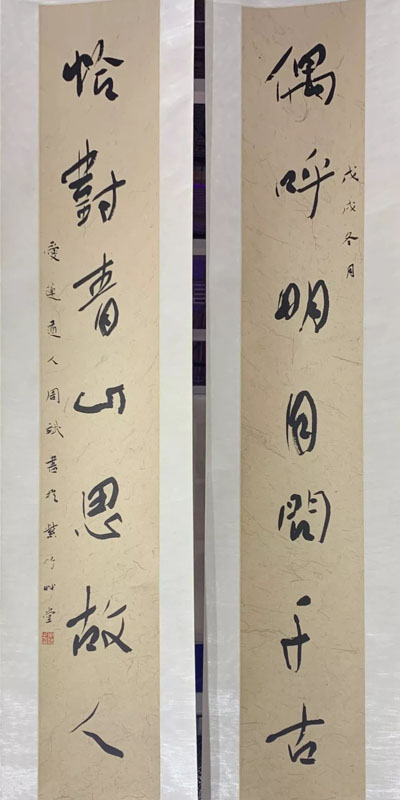 偶呼明月問千古
戊戌冬月
恰對青山思故人
愛蓮道人周斌書於紫竹艸堂